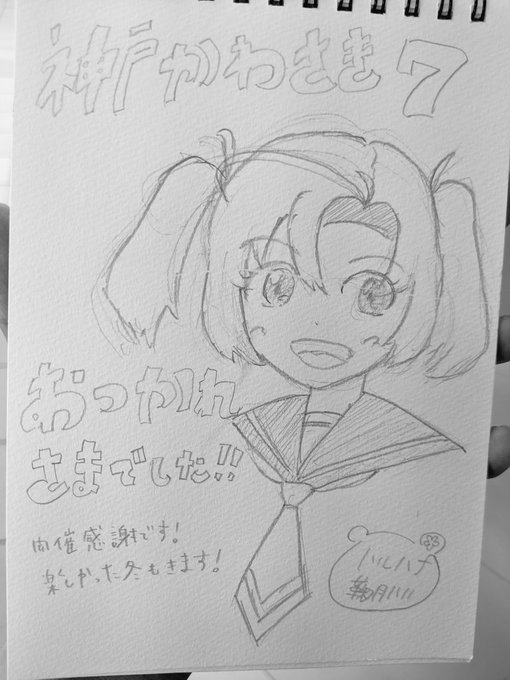 神戸かわさき7
おつかれ
さまでした!!
開催感謝です!
楽しかった冬もきます!